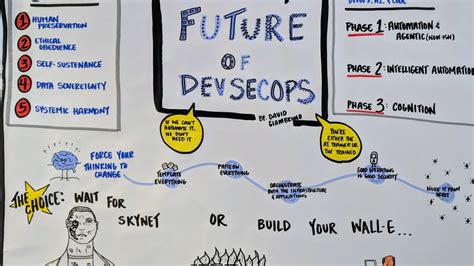 1 HUMAN PRESERVATION
2 ETHICAL OBEDIENCE
3 SELF-SUSTENANCE
4 DATA SOVEREIGNTY
5 SYSTEMIC HARMONY
FUTURE
OF
DEVSECOPS
BY: DAVID
GIAMBRUNO
IF WE CAN'T
AUTOMATE IT,
WE DON'T
NEED IT
YOU'RE EITHER
THE
AI TRAINER OR
THE TRAINED
PHASE 1: AUTOMATION &
AGENTIC (NON ISH)
PHASE 2: INTELLIGENT AUTOMATION
PHASE 3: COGNITION
FORCE YOUR
THINKING TO
CHANGE
TEMPLATE
EVERYTHING
PATTERN
EVERYTHING
ORCHESTRATE
BOTH THE INFRASTRUCTURE
& APPLICATIONS
GOOD OPERATIONS
IS GOOD SECURITY
NUKE IT FROM
ORBIT
THE CHOICE: WAIT FOR
SKYNET OR BUILD YOUR WALL-E...